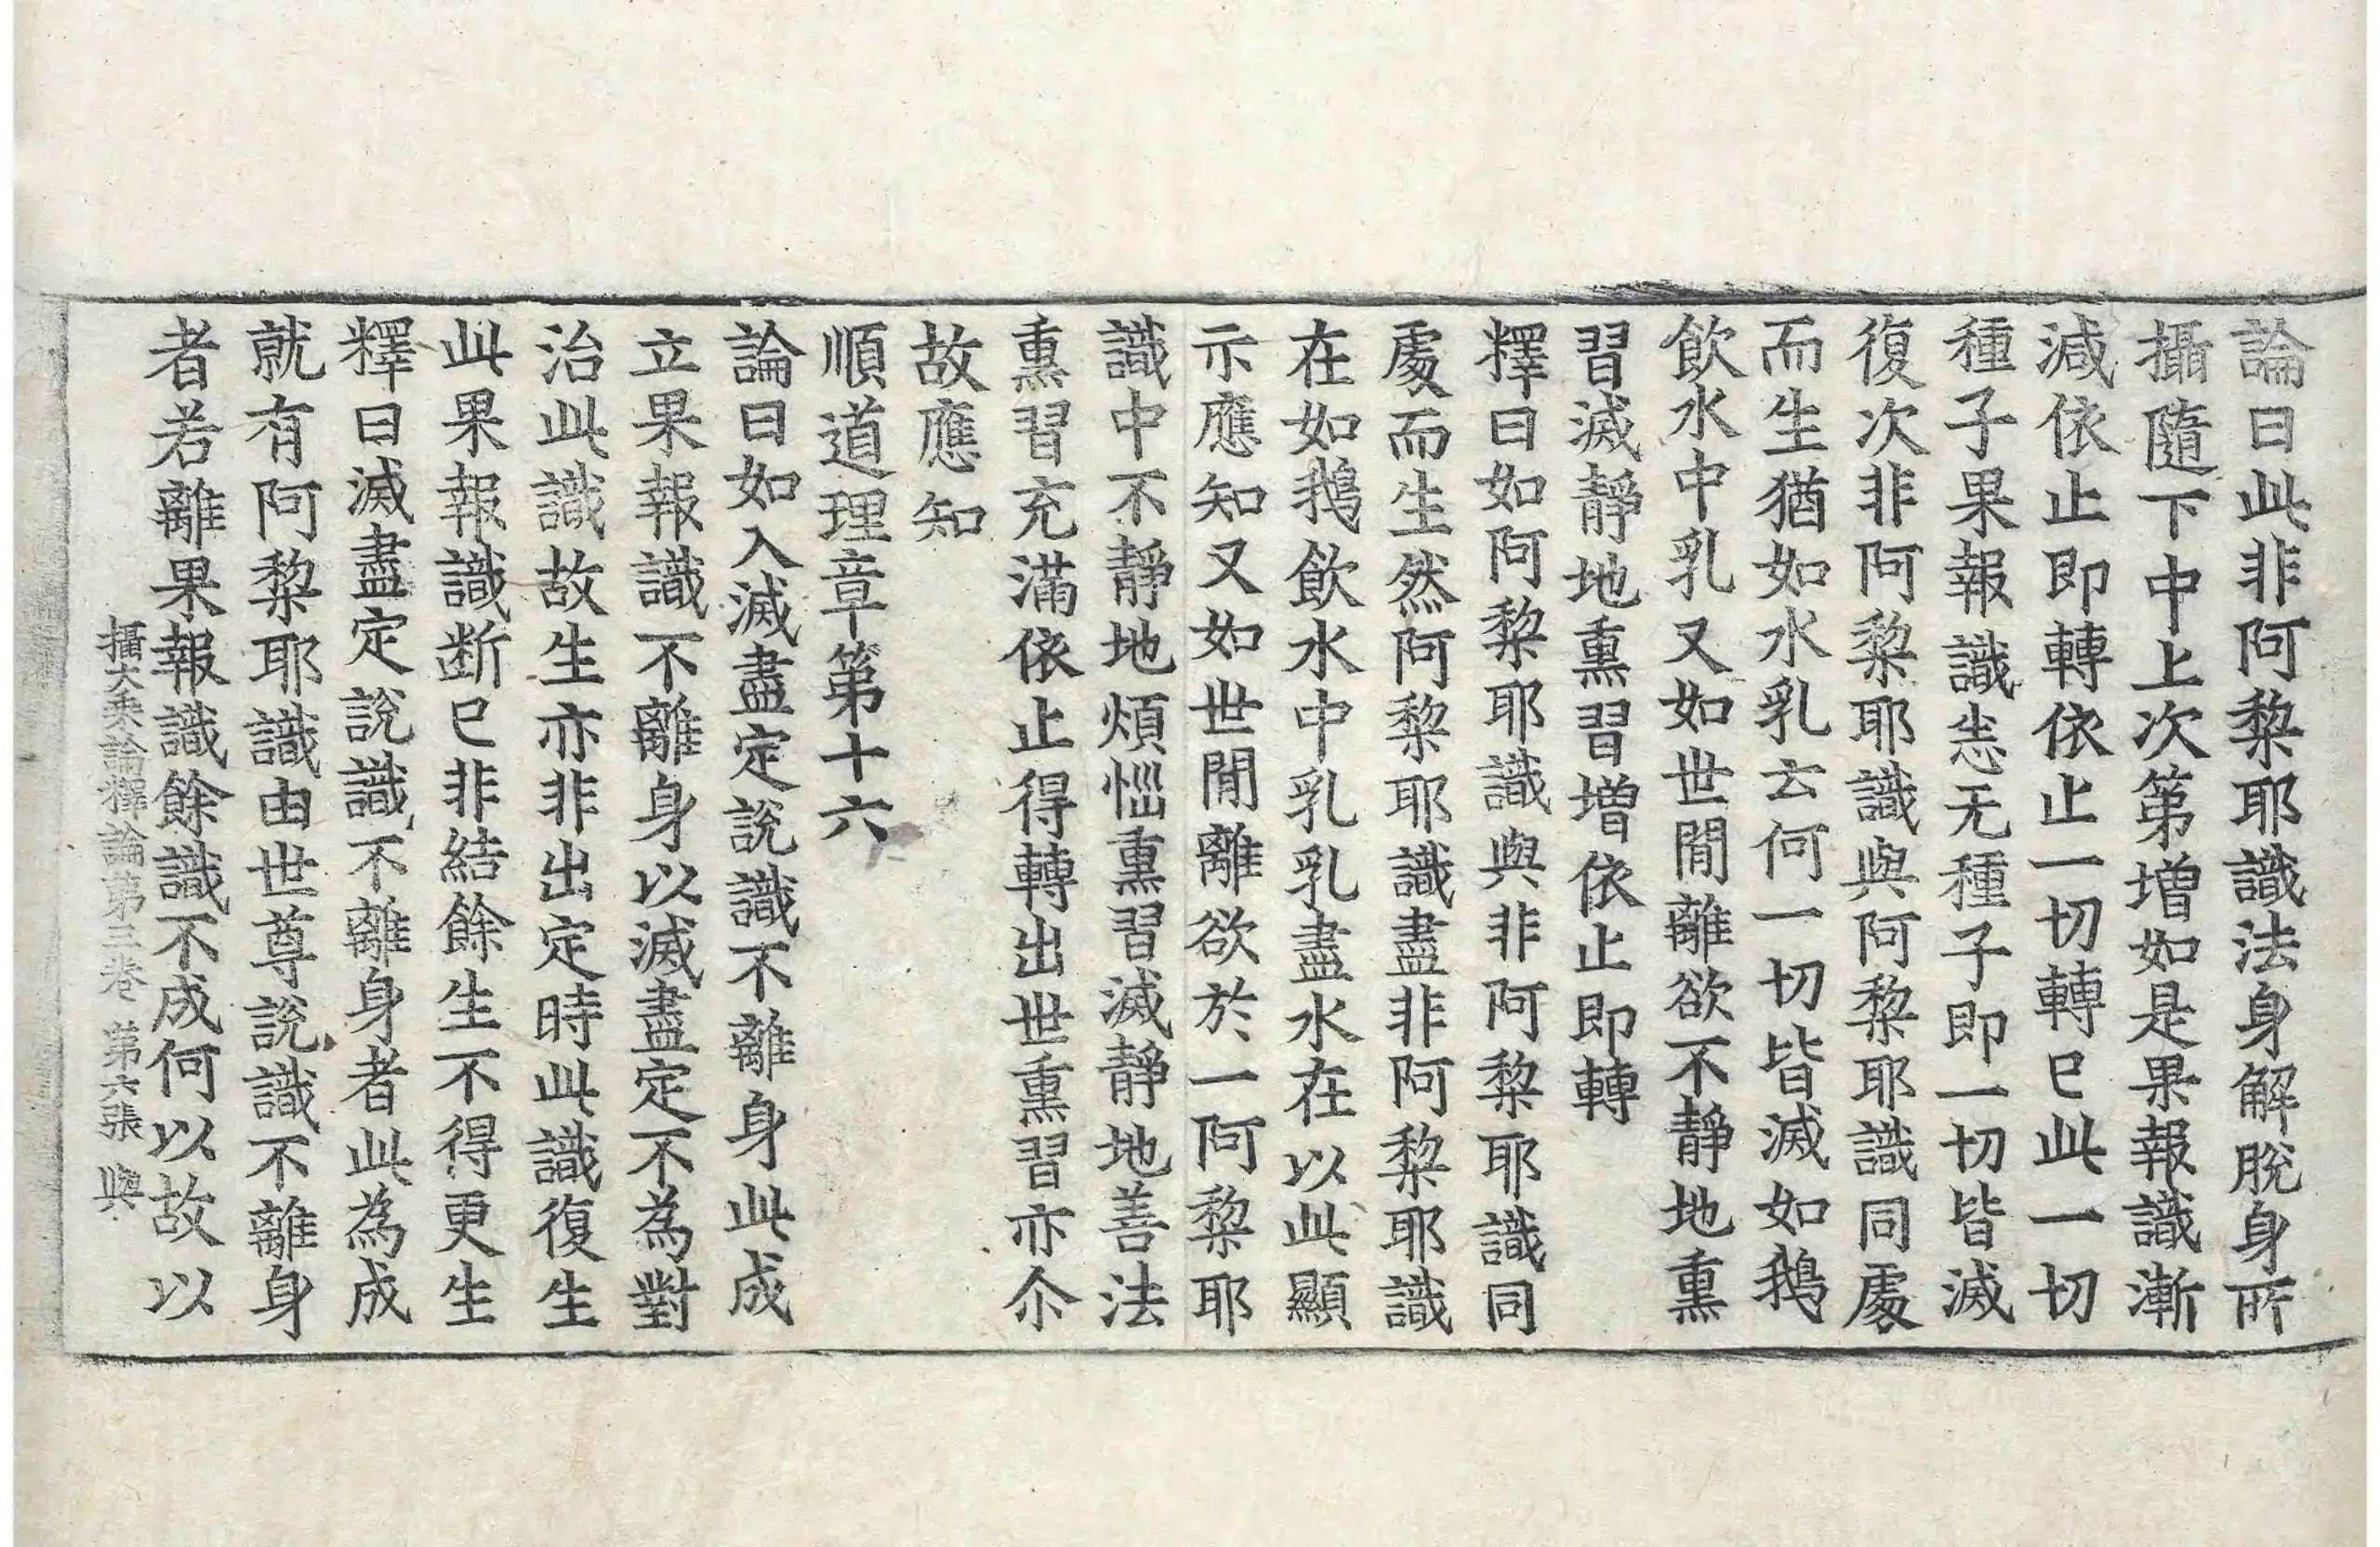 論曰此非阿棃耶識法身解脫身所
攝隨下中上次第增如是果報識漸
減依止即轉依止一切轉已此一切
種子果報識恚无種子即一切皆滅
復次非阿棃耶識與阿棃耶識同處
而生猶如水乳云何一切皆滅如鵝
飲水中乳又如世閒離欲不靜地熏
習滅靜地熏習增依止即轉
釋曰如阿棃耶識與非阿棃耶識同
處而生然阿棃耶識盡非阿棃耶識
在如鵝飲水中乳乳盡水在以此顯
示應知又如世閒離欲於一阿棃耶
識中不靜地煩惱熏習滅靜地善法
熏習充滿依止得轉出世熏習亦尒
故應知
順道理章第十六
論曰如入滅盡定說識不離身此成
立果報識不離身以滅盡定不為對
治此識故生亦非出定時此識復生
此果報識断已非結餘生不得更生
釋曰滅盡定說識不離身者此為成
就有阿棃耶識由世尊說識不離身
者若離果報識餘識不成何以故以
攝大乘論釋論第三卷 第六張 與